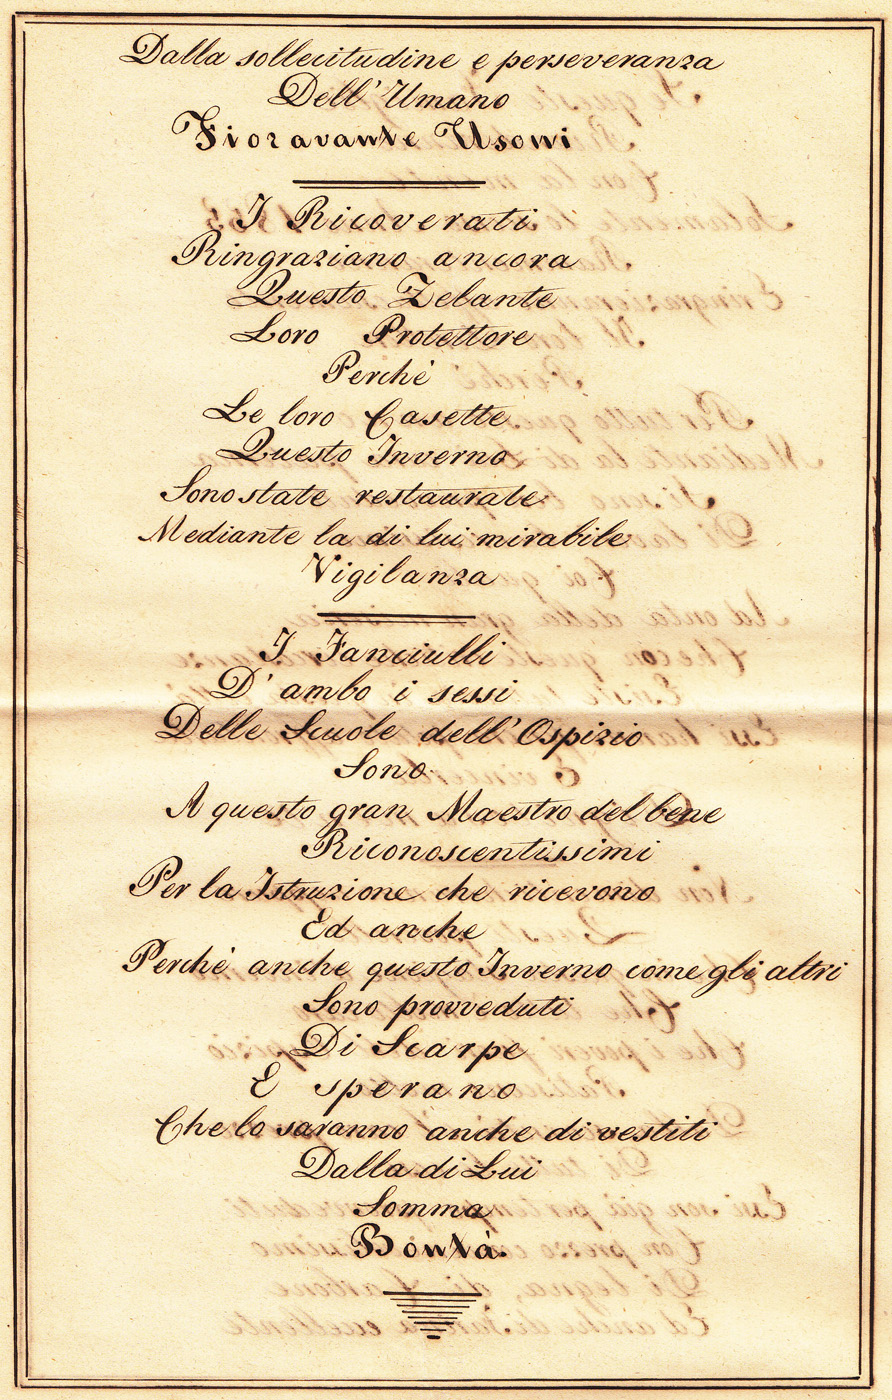 Dalla sollecitudine e perseveranza
Dell' Umano
Fioravante Usoni
I Ricoverati
Ringraziano ancora
Questo Zelante
Loro Protettore
Perchè
Le loro Casette
Questo Inverno
Sono state restaurate
Mediante la di lui mirabile
Vigilanza
I Fanciulli
D' ambo i sessi
Delle Scuole dell' Ospizio
Sono
A questo gran Maestro del bene
Riconoscentissimi
Per la Istruzione che ricevono
Ed anche
Perchè anche questo Inverno come gli altri
Sono provveduti
Di Scarpe
E sperano
Che lo saranno anche di vestiti
Dalla di Lui
Somma
Bontà.